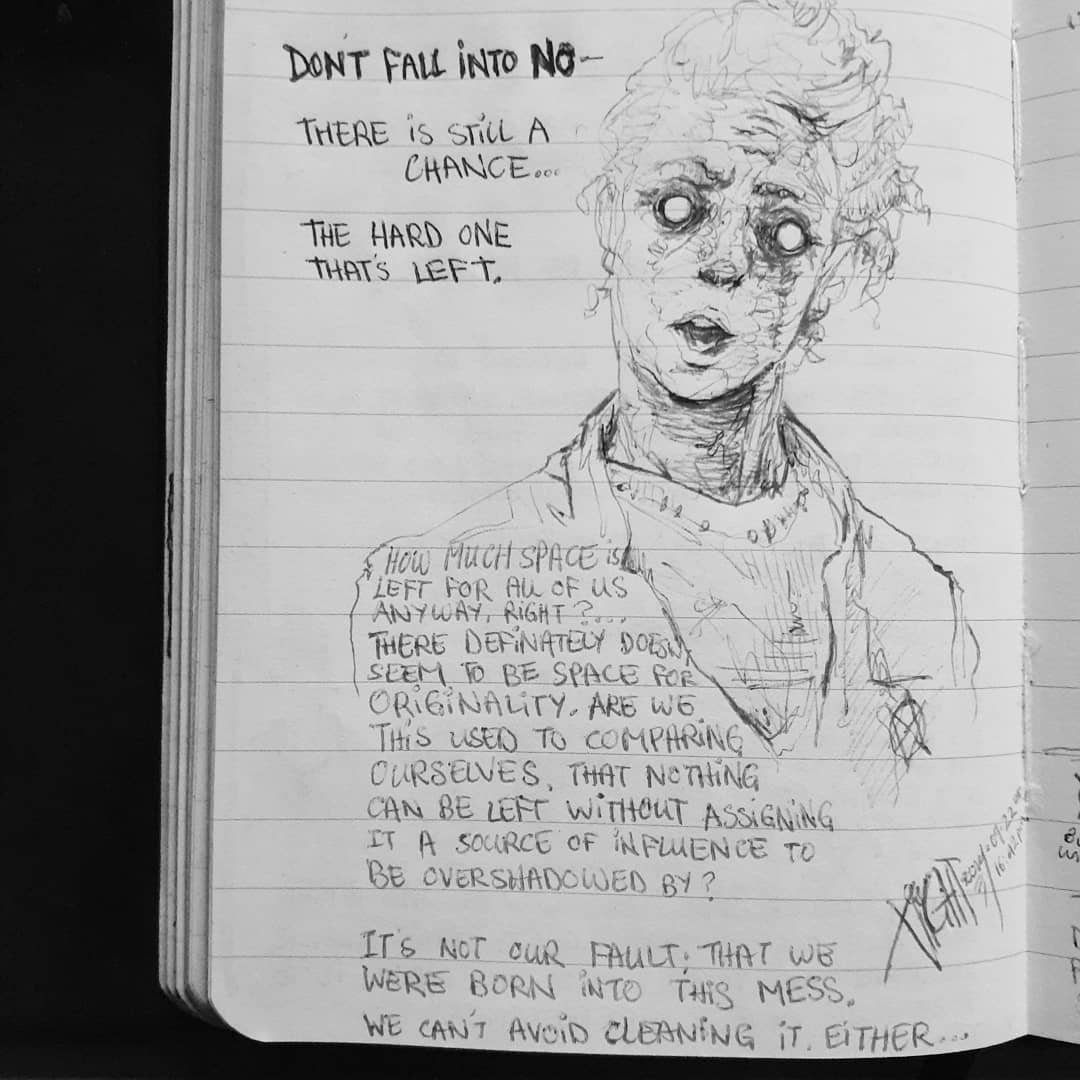 DON'T FALL INTO NO-
THERE IS STILL A
CHANCE...
THE HARD ONE
THAT'S LEFT.
HOW MUCH SPACE IS
LEFT FOR ALL OF US
ANYWAY, RIGHT?....
THERE DEFINATELY DOESN'T
SEEM TO BE SPACE FOR
ORIGINALITY. ARE WE
THIS USED TO COMPARING
OURSELVES, THAT NOTHING
CAN BE LEFT WITHOUT ASSIGNING
IT A SOURCE OF INFLUENCE TO
BE OVERSHADOWED BY?
IT'S NOT OUR FAULT, THAT WE
WERE BORN INTO THIS MESS.
WE CAN'T AVOID CLEANING IT, EITHER...